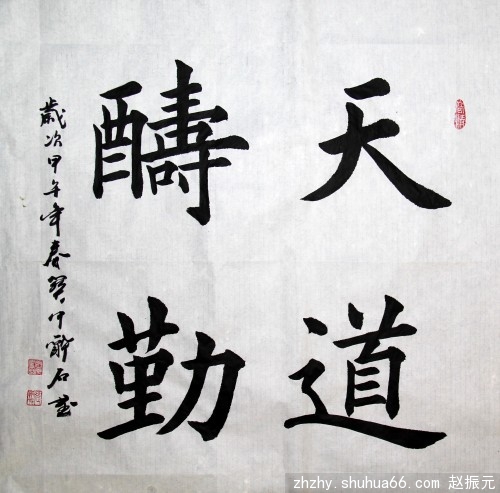 天道
醻勤
歲次甲午年春
石
zhzhy.shuhua66.com 赵振元